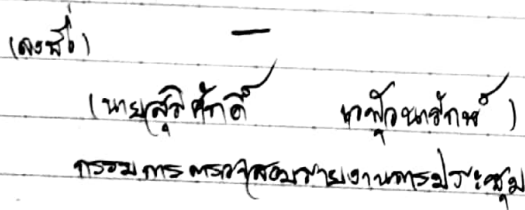 (ลงชื่อ) –
(นายสุริศักดิ์
กรรมการตรวจสอบรายงานการประชุม